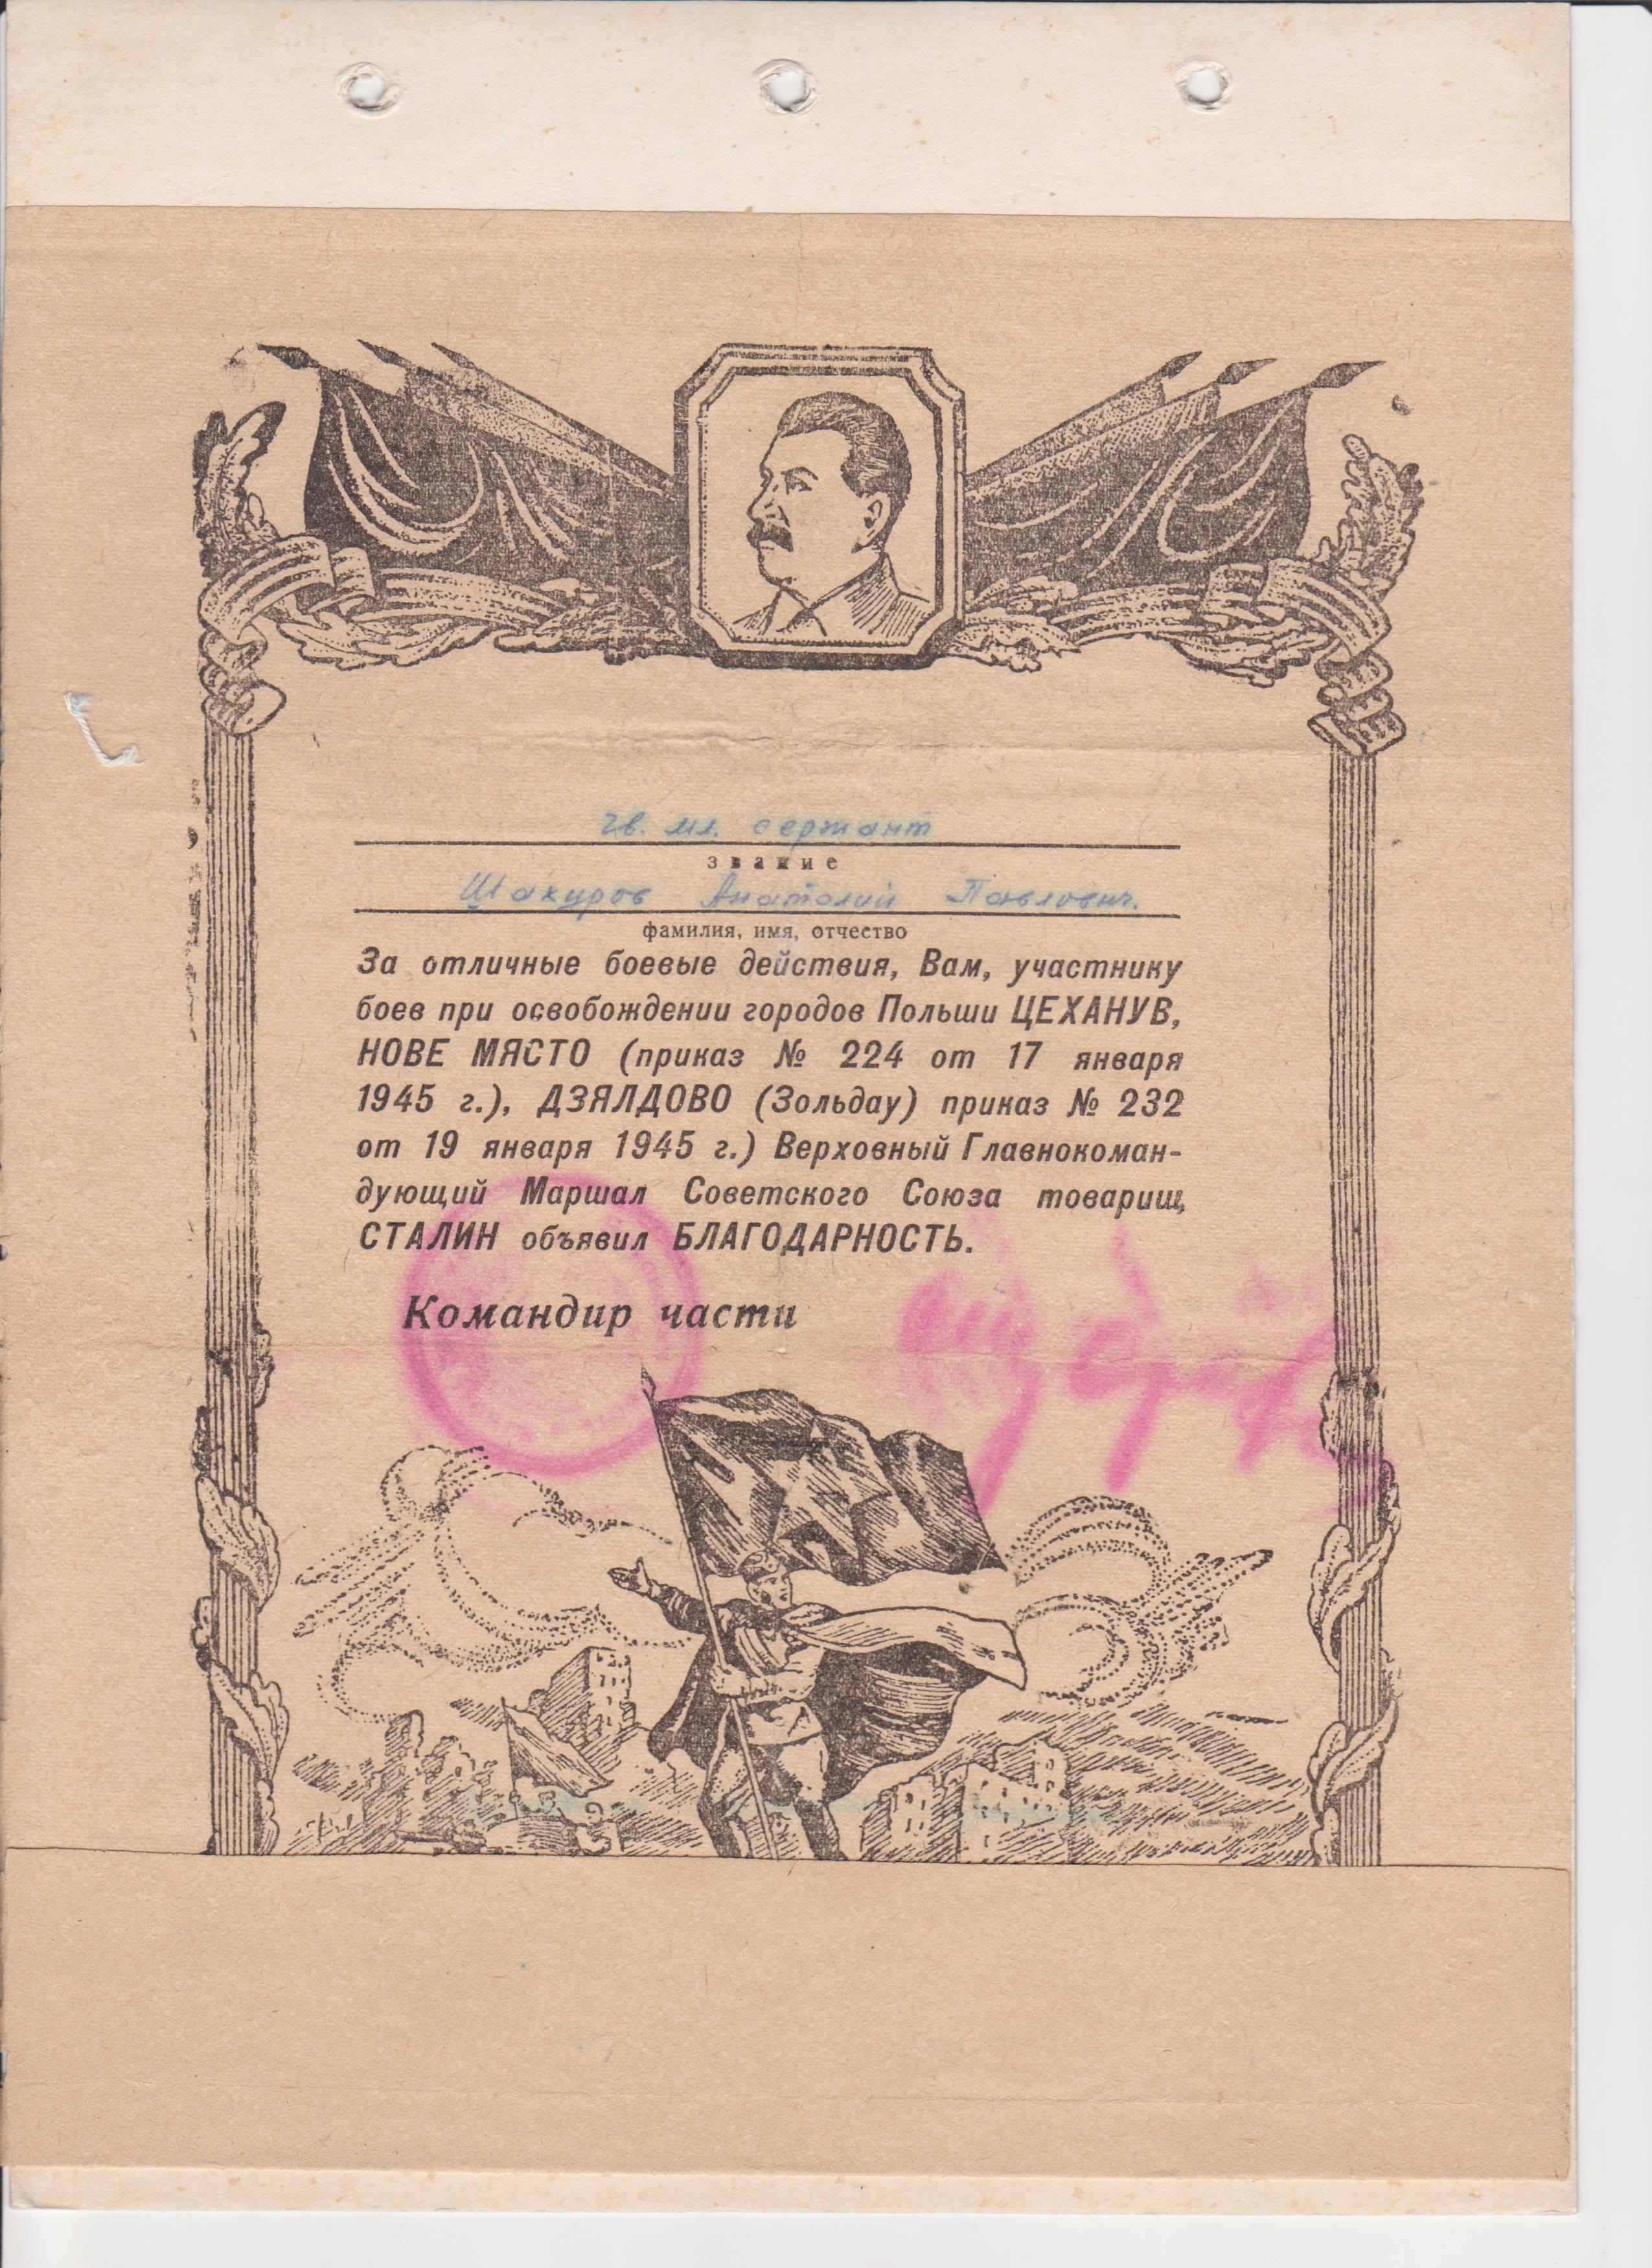 гв. мл. сержант
звание
Шакуров Анатолий Павлович.
фамилия, имя, отчество
За отличные боевые действия, Вам, участнику
боев при освобождении городов Польши ЦЕХАНУВ,
НОВЕ МЯСТО (приказ № 224 от 17 января
1945 г.), ДЗЯЛДОВО (Зольдау) приказ № 232
от 19 января 1945 г.) Верховный Главнокоман-
дующий Маршал Советского Союза товарищ
СТАЛИН объявил БЛАГОДАРНОСТЬ.
Командир части